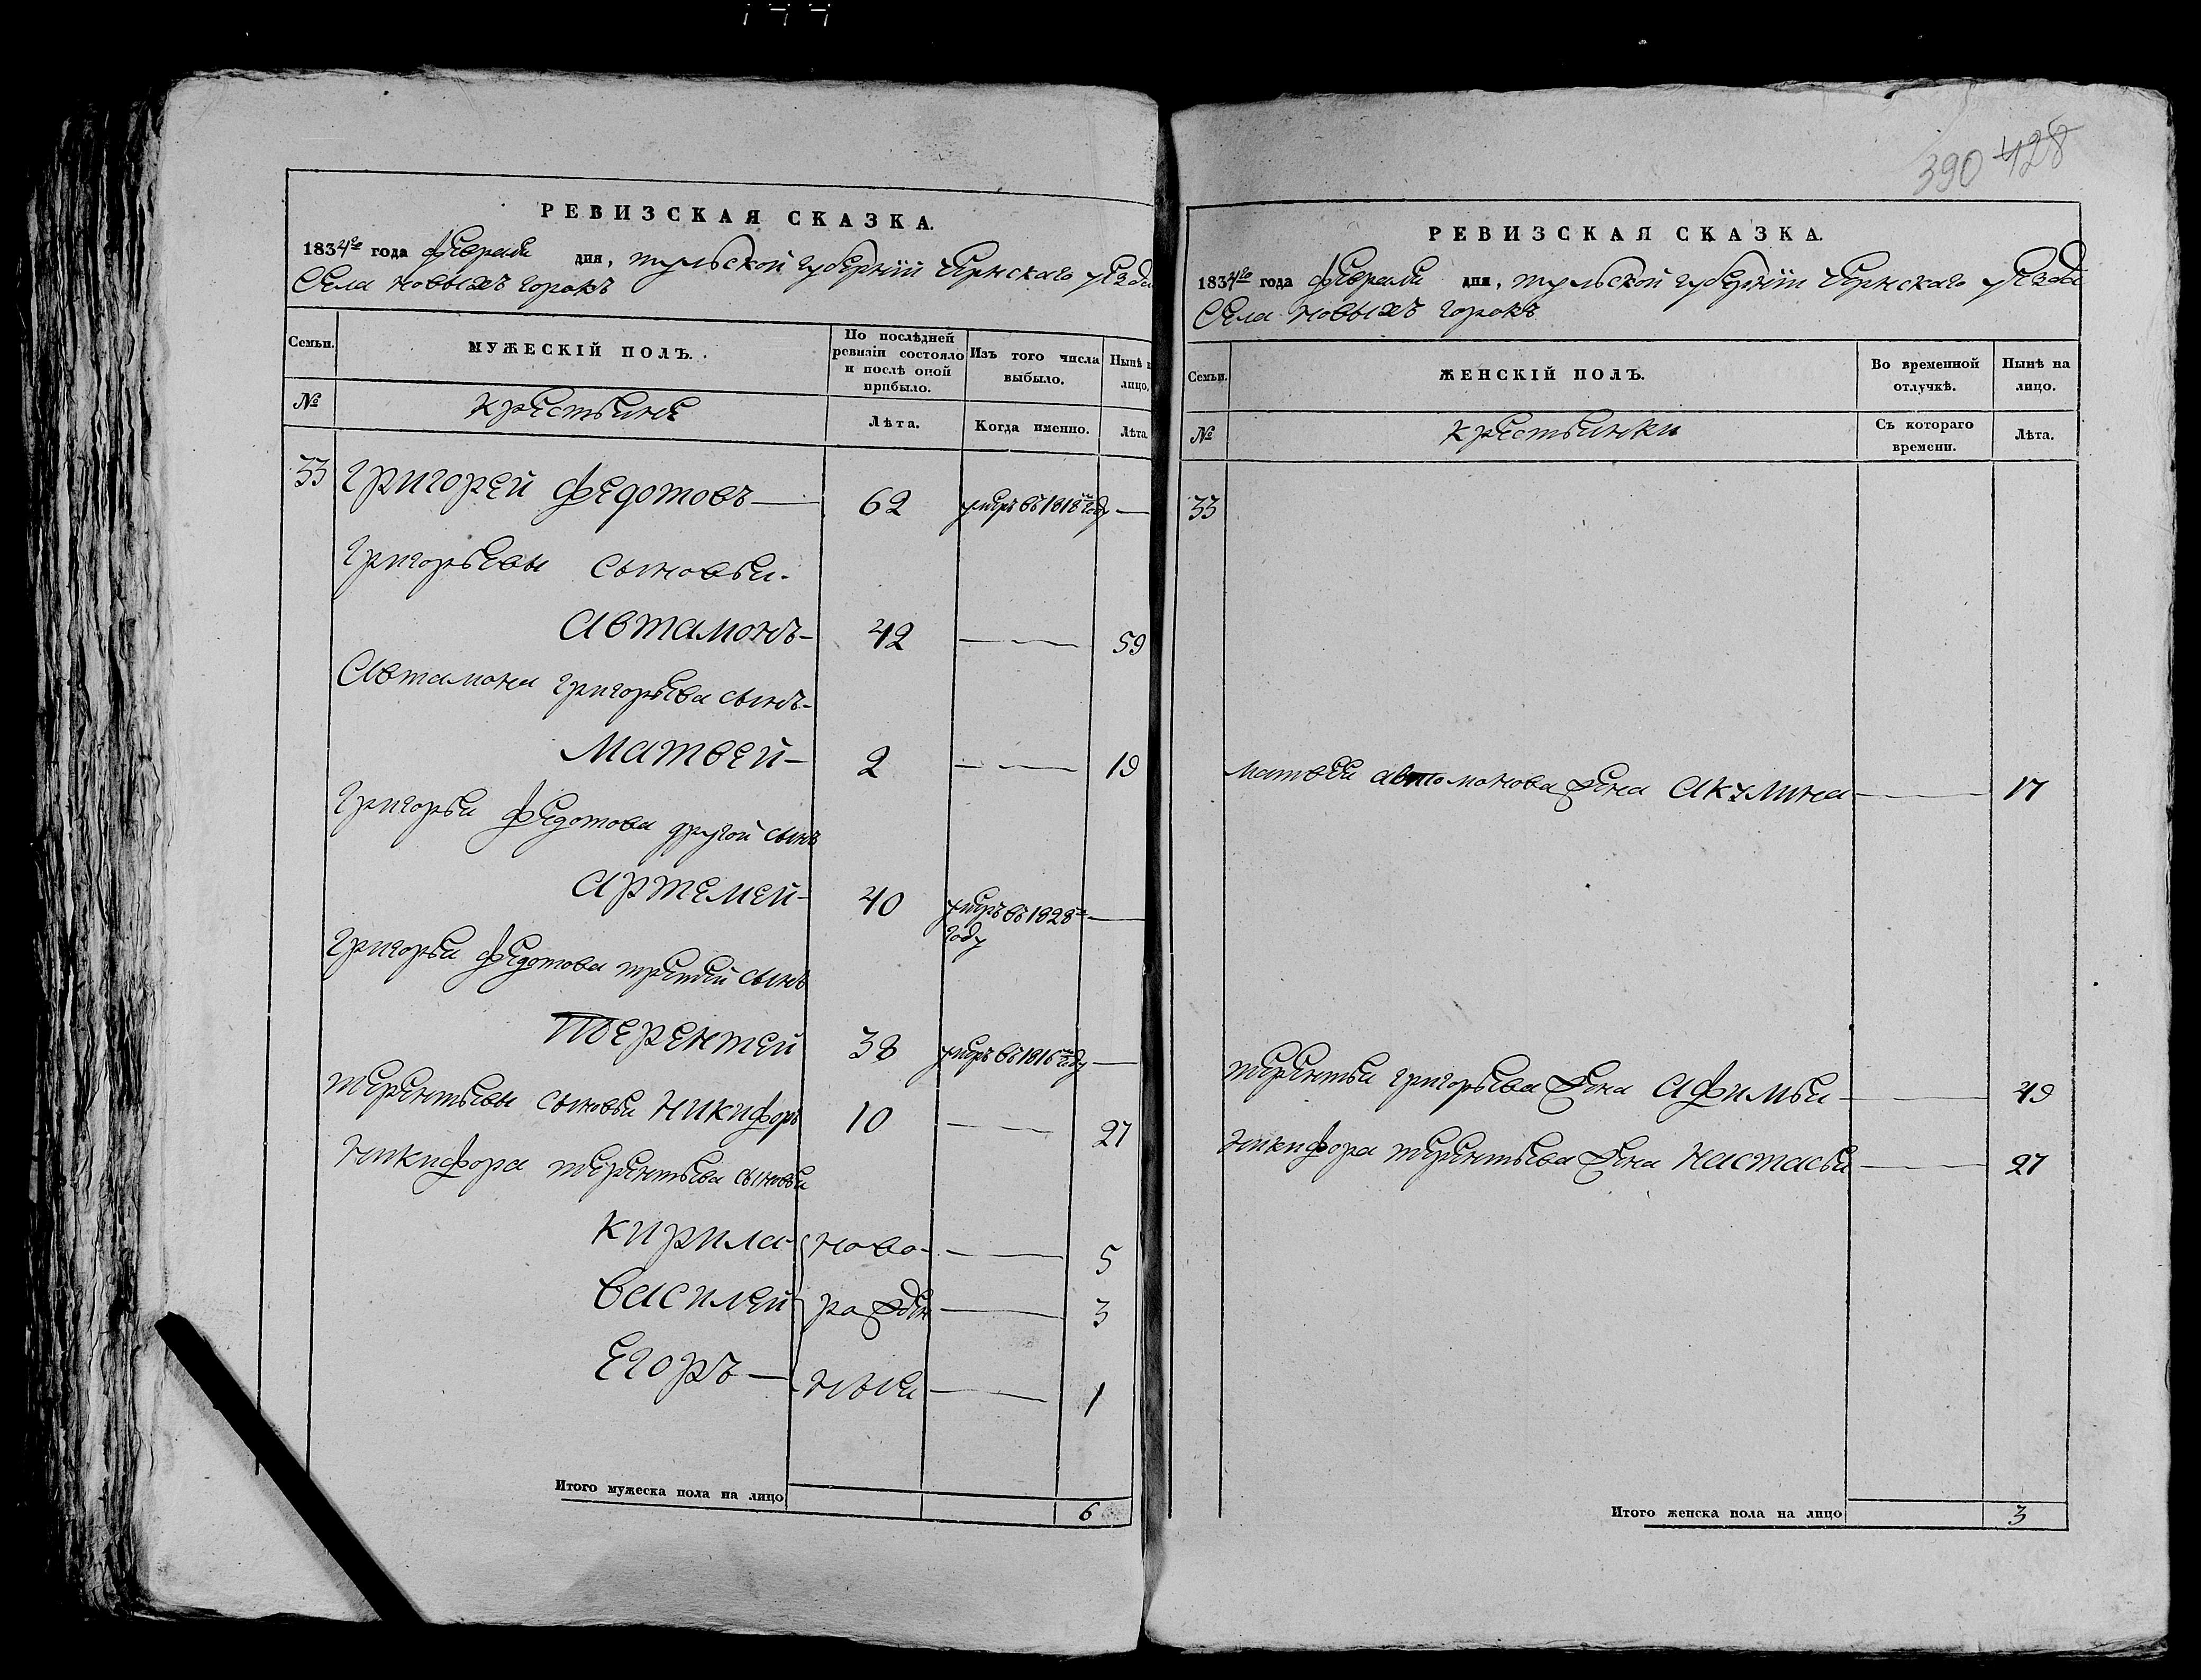 РЕВИЗСКАЯ СКАЗКА.
1834го года февраля дня, тульской губернiи Чернскаго уезда
Села новыхъ горокъ
Семьи.
МУЖЕСКІЙ ПОЛЪ.
По послѣдней ревизіи состояло и послѣ оной прибыло.
Изъ того числа выбыло.
Нынѣ на лицо,
№
крестьяне
Лѣта.
Когда именно.
Лѣта
33 григорей федотовъ 62 умеръ въ 1818м году
григорьевы сыновья
автамонъ 42 59
Автамона григорьева сынъ
Матвей 2 19
григорья федотова другой сынъ
артемей 40 умеръ въ 1828м
году
григорья федотова третей сынъ
терентей 38 умеръ въ 1816м году
терентьевы сыновья никифоръ 10 27
никифора терентьева сыновья
кирила ново 5
василей рожден 3
егоръ ныя 1
Итого мужеска пола на лицо 6
390 428
РЕВИЗСКАЯ СКАЗКА.
1834го года февраля дня, тульской губернiи Чернскаго уезда
Села новыхъ горокъ
Семьи.
ЖЕНСКІЙ ПОЛЪ.
Во временной отлучкѣ.
Нынѣ на лицо.
№
крестьянки
Съ котораго времени.
Лѣта.
33
матвея автомонова жена акулина 17
терентья григорьева жена афимья 49
никифора терентьева жена настасья 27
Итого женска пола на лицо 3